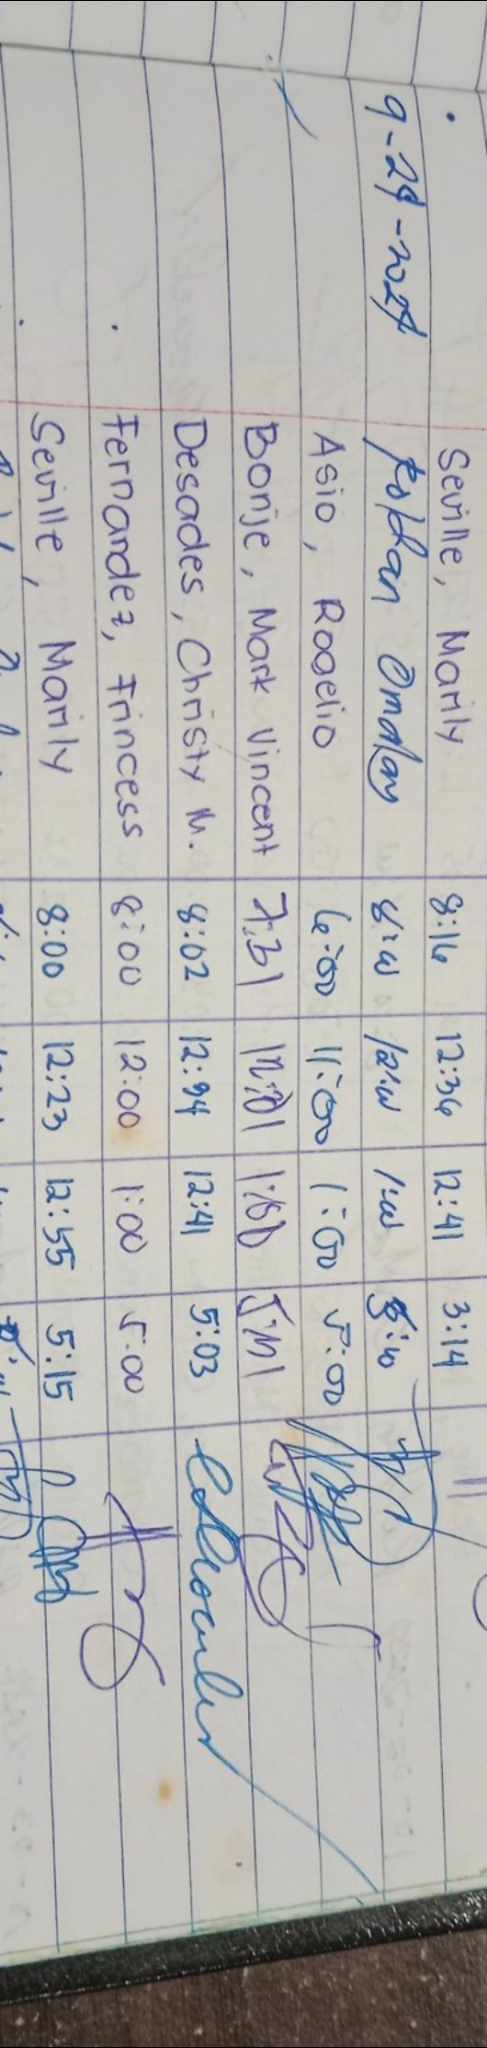 Seville, Marily 8:16 12:36 12:41 3:14
9-24-2024 Omalay 8:00 12:00 1:00 5:00
Asio, Rogelio 6:00 11:00 1:00 5:00
Bonje, Mark Vincent 7:31 12:01 5:01
Desades, Christy M. 8:02 12:34 12:41 5:03
Fernandez, Frincess 8:00 12:00 1:00 5:00
Seville, Marily 8:00 12:23 12:55 5:15